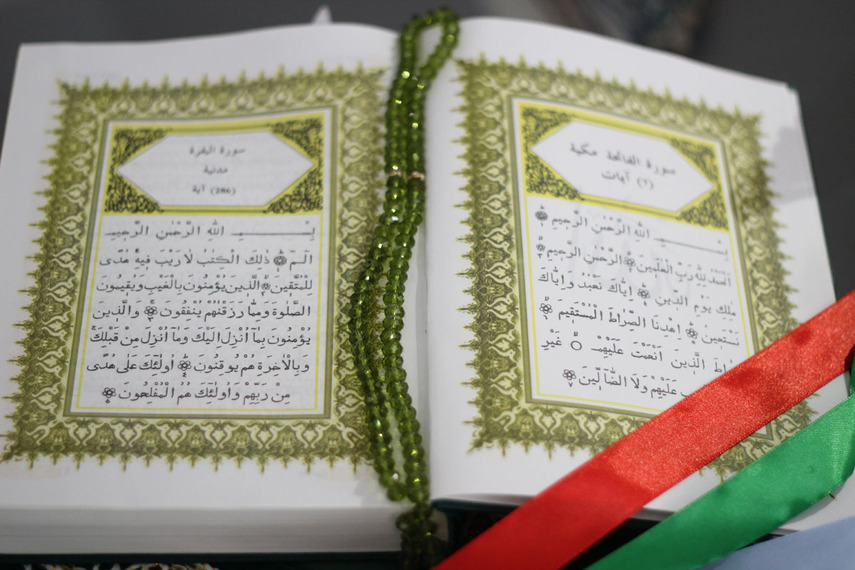 سورة الفاتحة مكية
(٧) آيات
بِسْــــمِ اللهِ الرَّحْمٰنِ الرَّحِيمِ
اَلْحَمْدُ لِلّٰهِ رَبِّ الْعٰلَمِينَ الرَّحْمٰنِ الرَّحِيمِ
مٰلِكِ يَوْمِ الدِّينِ اِيَّاكَ نَعْبُدُ وَاِيَّاكَ
نَسْتَعِينُ اِهْدِنَا الصِّرَاطَ الْمُسْتَقِيمَ
الَّذِينَ اَنْعَمْتَ عَلَيْهِمْ غَيْرِ
عَلَيْهِمْ وَلَا الضَّالِّينَ ٧
سورة البقرة
مدنية
(286) آية
بِسْــــمِ اللهِ الرَّحْمٰنِ الرَّحِيمِ
الٓمٓ ذٰلِكَ الْكِتٰبُ لَا رَيْبَ فِيهِ هُدًى
لِلْمُتَّقِينَ الَّذِينَ يُؤْمِنُونَ بِالْغَيْبِ وَيُقِيمُونَ
الصَّلٰوةَ وَمِمَّا رَزَقْنٰهُمْ يُنْفِقُونَ وَالَّذِينَ
يُؤْمِنُونَ بِمَا اُنْزِلَ اِلَيْكَ وَمَا اُنْزِلَ مِنْ قَبْلِكَ
وَبِالْاٰخِرَةِ هُمْ يُوقِنُونَ اُولٰئِكَ عَلٰى هُدًى
مِنْ رَبِّهِمْ وَاُولٰئِكَ هُمُ الْمُفْلِحُونَ